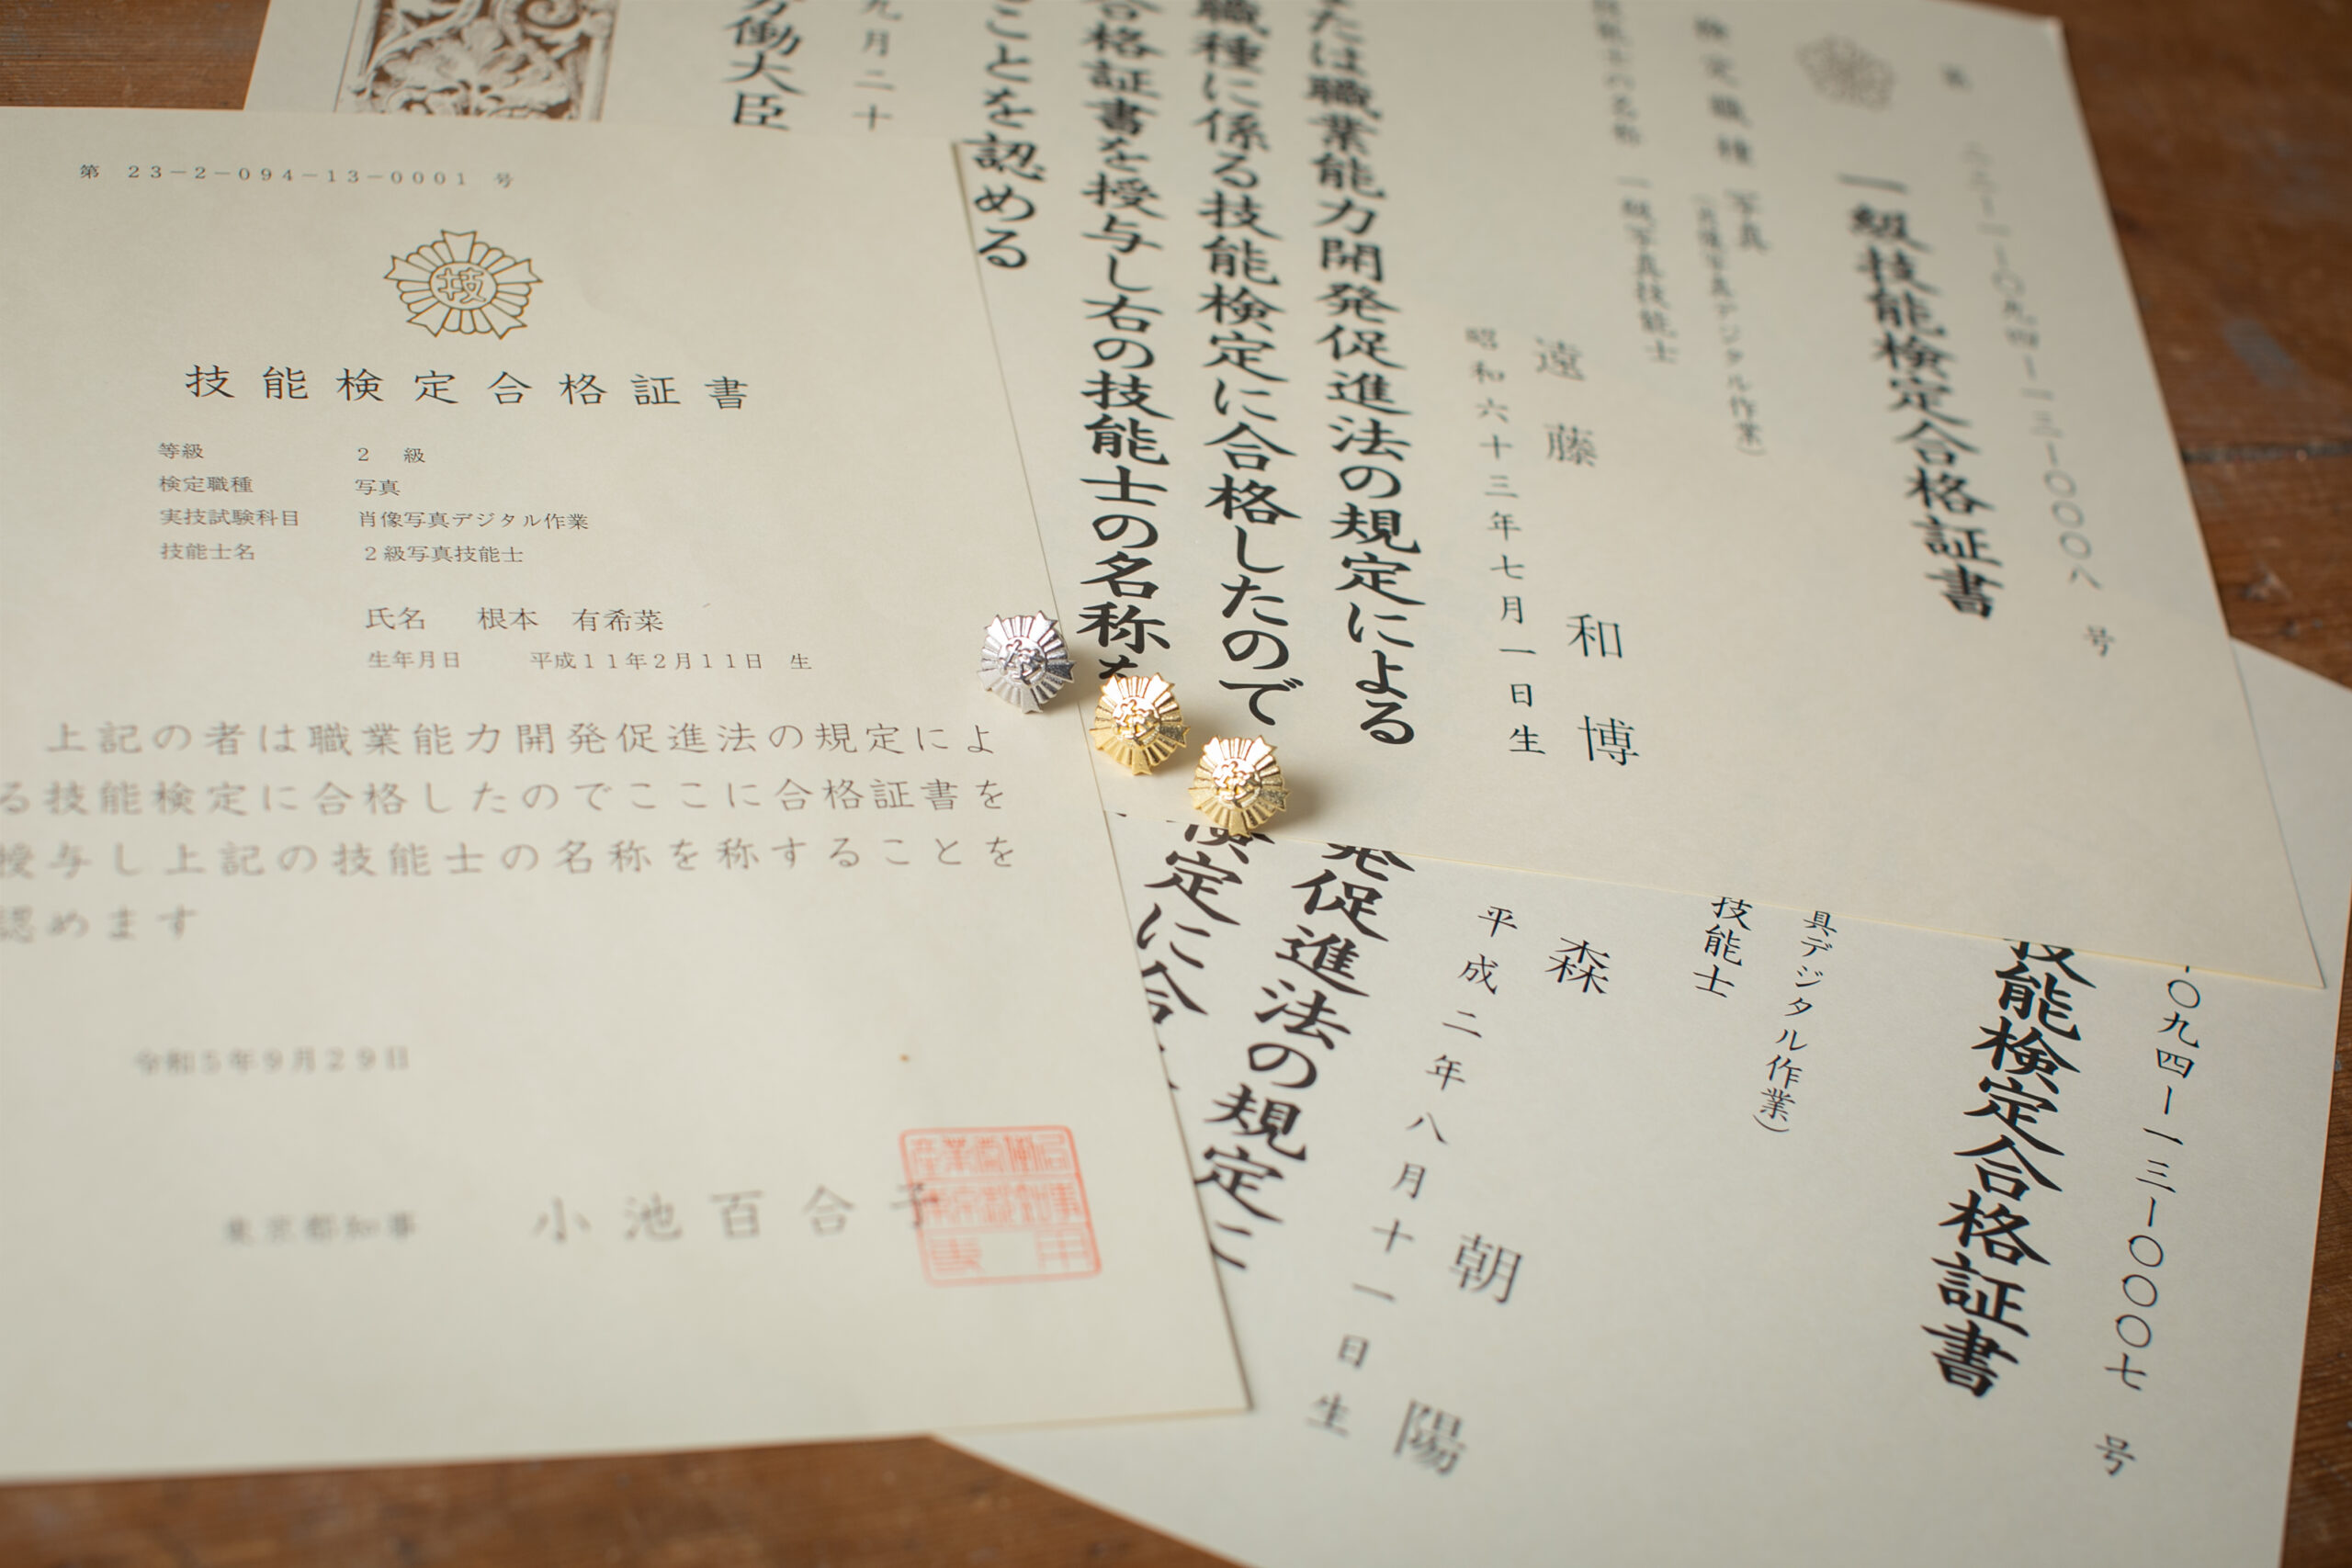 第 23-2-094-13-0001 号
技
技能検定合格証書
等級 2 級
検定職種 写真
実技試験科目 肖像写真デジタル作業
技能士名 2級写真技能士
氏名 根本 有希菜
生年月日 平成11年2月11日 生
上記の者は職業能力開発促進法の規定によ
る技能検定に合格したのでここに合格証書を
授与し上記の技能士の名称を称することを
認めます
令和5年9月29日
東京都知事 小池百合子
第 二三-一-〇九四-一三-〇〇〇八 号
一級技能検定合格証書
検定職種 写真
(肖像写真デジタル作業)
一級写真技能士
遠藤 和博
昭和六十三年七月一日生
たは職業能力開発促進法の規定による
職種に係る技能検定に合格したので
合格証書を授与し右の技能士の名称を
ことを認める
九月二十
労働大臣
〇九四-一三-〇〇〇七 号
技能検定合格証書
真デジタル作業)
技能士
森 朝陽
平成二年八月十一日生
発促進法の規定に
検定に合